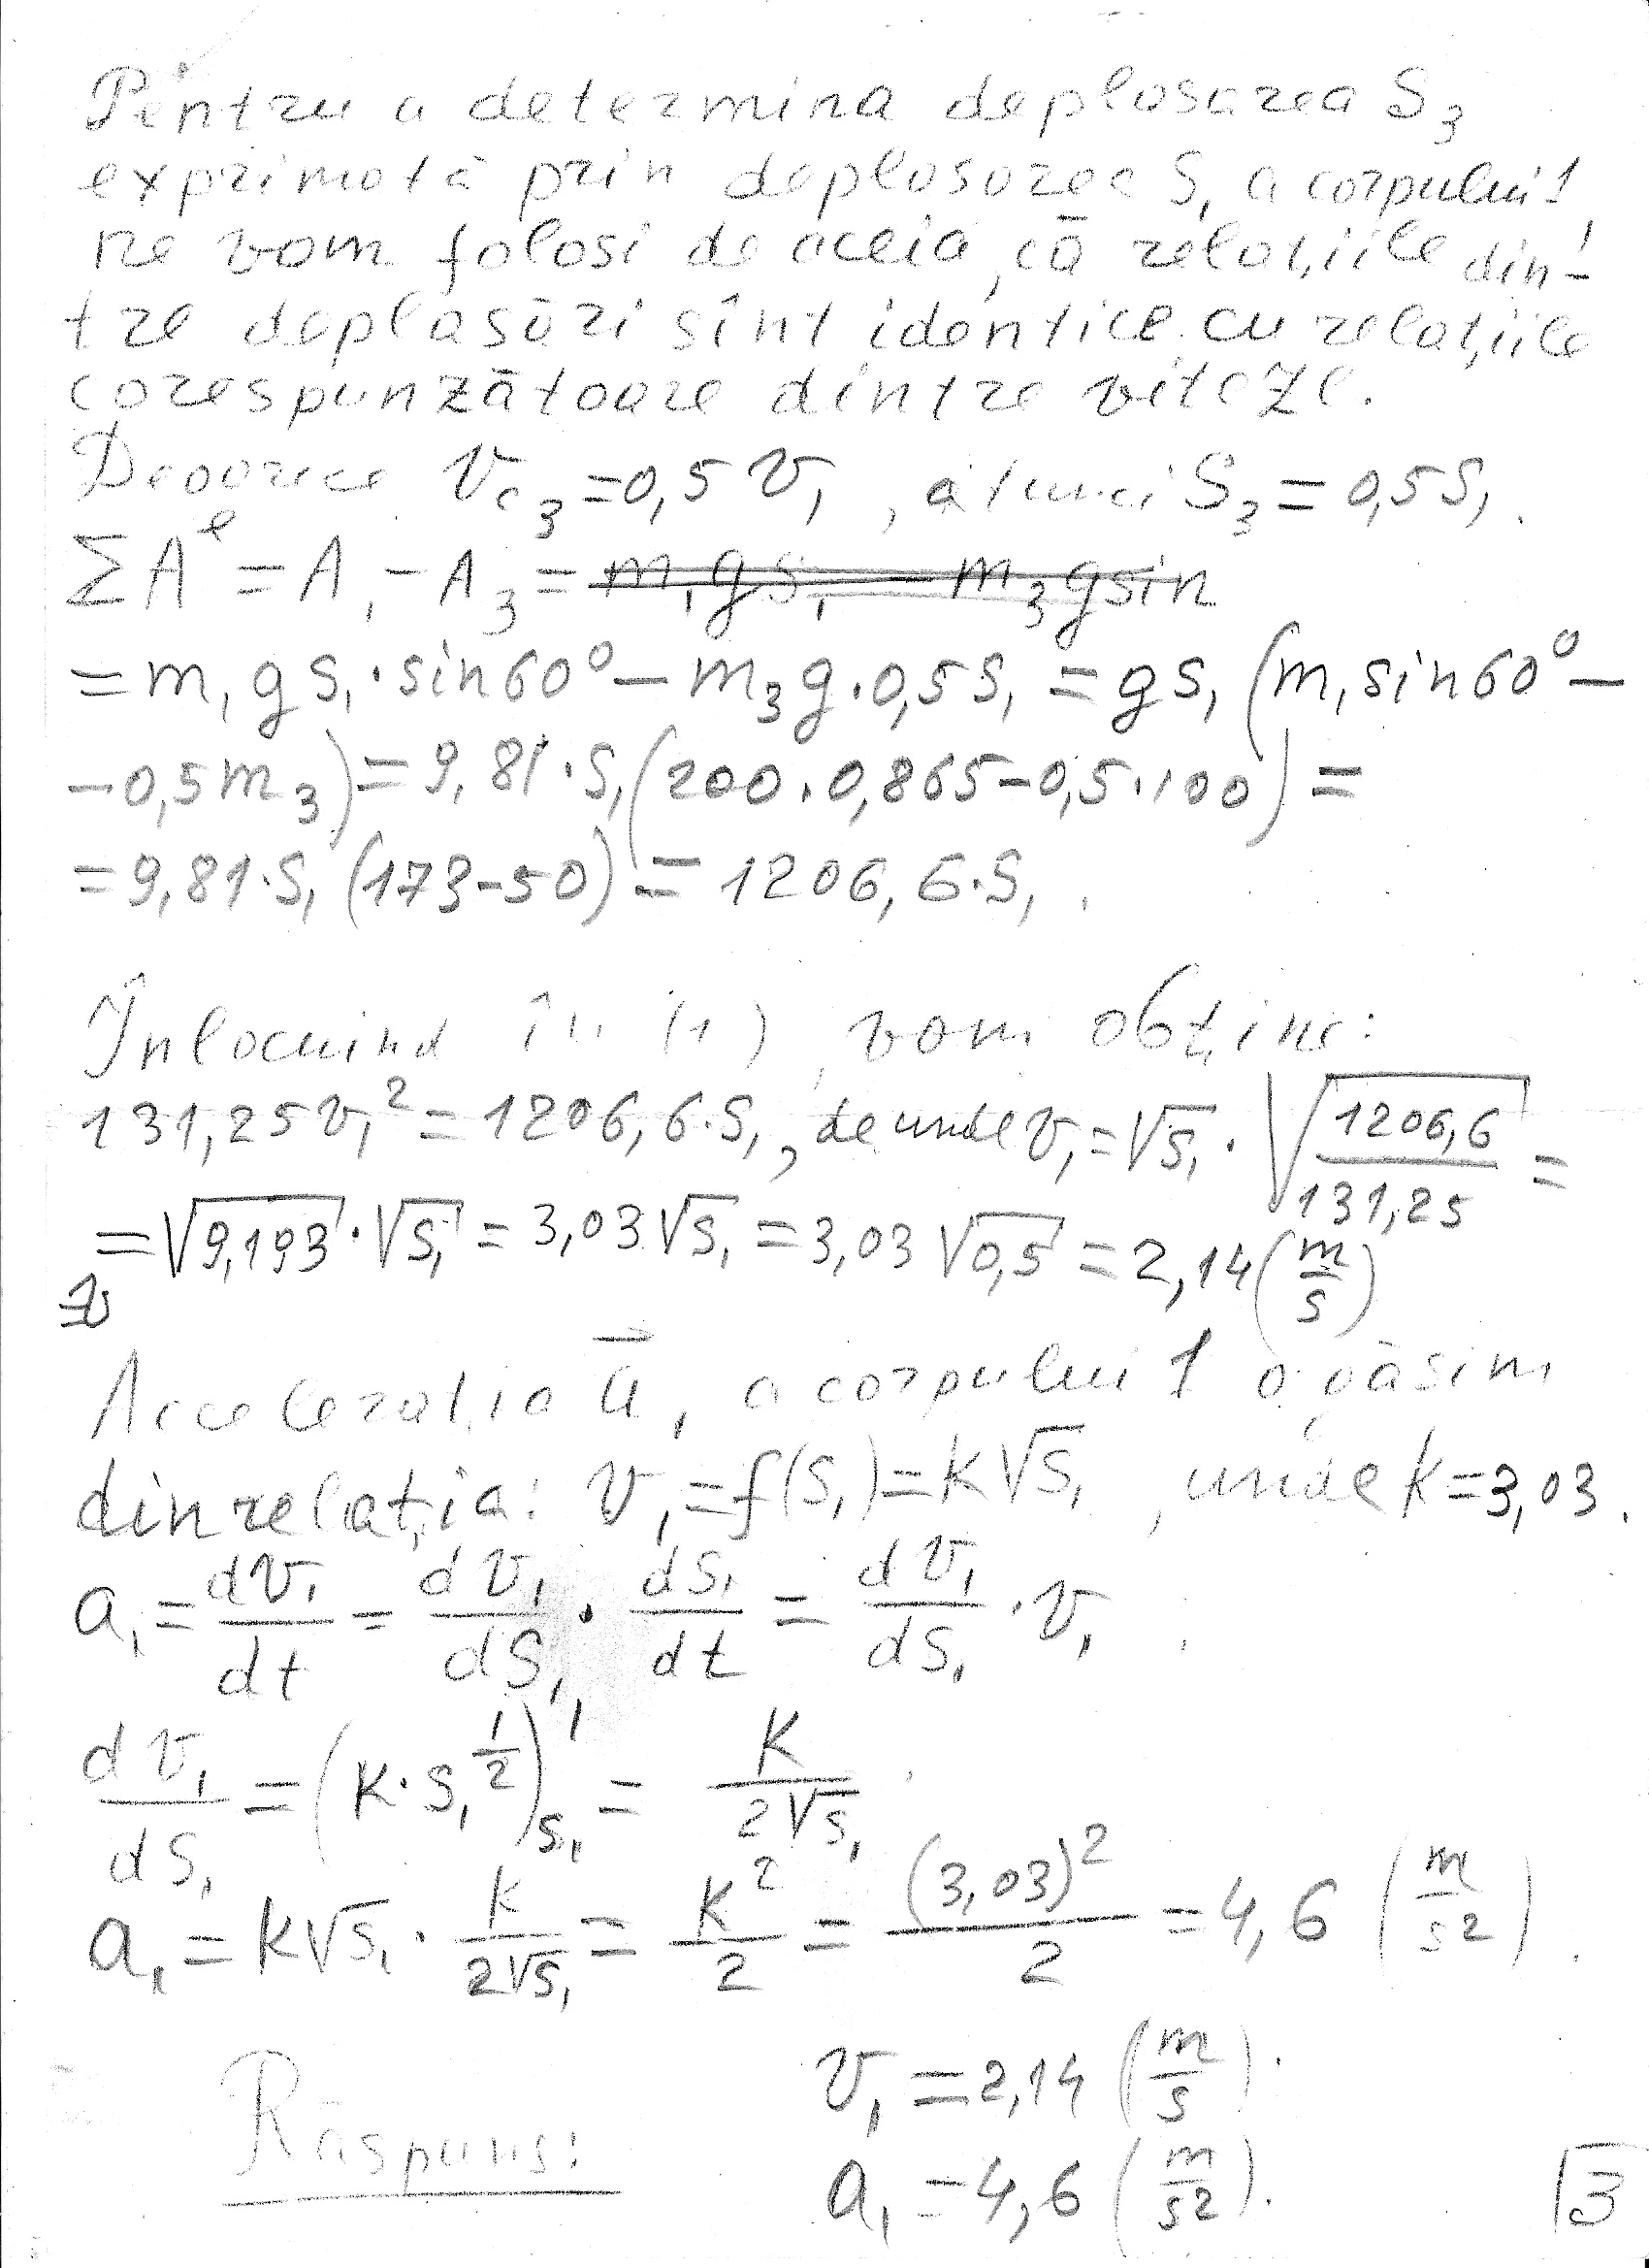 Pentru a determina deplasarea S₃
exprimată prin deplasarea S₁ a corpului 1
ne vom folosi de aceia, că relațiile din-
tre deplasări sînt identice cu relațiile
corespunzătoare dintre viteze.
Deoarece V_C₃ = 0,5 V₁, atunci S₃ = 0,5S₁.
ΣAᵉ = A₁ - A₃ = m₁gs₁ - m₃gsin
= m₁gS₁·sin60° - m₃g·0,5S₁ = gS₁(m₁sin60° -
- 0,5m₃) = 9,81·S₁(200·0,865-0,5·100) =
= 9,81·S₁(173-50) = 1206,6·S₁.
Înlocuind în (1), vom obține:
131,25v₁² = 1206,6·S₁, de unde v₁ = √S₁ · √(1206,6/131,25) =
= √9,193 · √S₁ = 3,03√S₁ = 3,03√0,5 = 2,14 (m/s)
Accelerația a⃗₁ a corpului 1 o găsim
din relația: v₁ = f(S₁) = k√S₁, unde k = 3,03.
a₁ = dv₁/dt = dv₁/dS₁ · dS₁/dt = dv₁/dS₁ · v₁
dv₁/dS₁ = (k·S₁^(1/2))'_S₁ = k/(2√S₁)
a₁ = k√S₁ · k/(2√S₁) = k²/2 = (3,03)²/2 = 4,6 (m/s²).
v₁ = 2,14 (m/s).
Răspuns:
a₁ = 4,6 (m/s²).
3